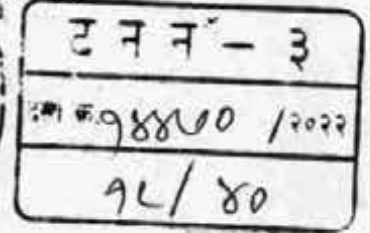 ट न न - ३
क्र. १४४७० /२०२२
१८/ ४०